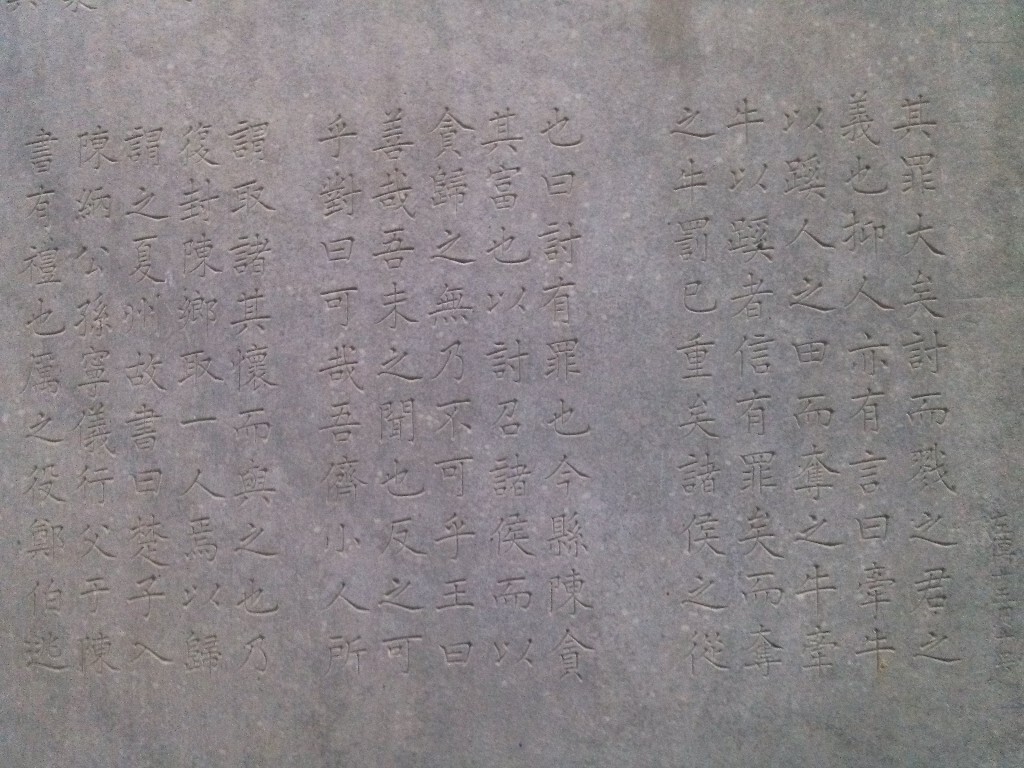 其罪大矣討而戮之君之
義也抑人亦有言曰牽牛
以蹊人之田而奪之牛牽
牛以蹊者信有罪矣而奪
之牛罰已重矣諸侯之從
也曰討有罪也今縣陳貪
其富也以討召諸侯而以
貪歸之無乃不可乎王曰
善哉吾未之聞也反之可
乎對曰可哉吾儕小人所
謂取諸其懷而與之也乃
復封陳鄉取一人焉以歸
謂之夏州故書曰楚子入
陳納公孫寧儀行父于陳
書有禮也厲之役鄭伯逃